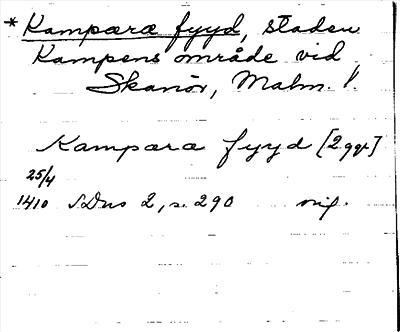 * Kamparæ fyyd, staden
Kampens område vid
Skanör, Malm. l.
Kampara fyyd [2 ggr]
25/4
1410 SDns 2, s. 290 orig.